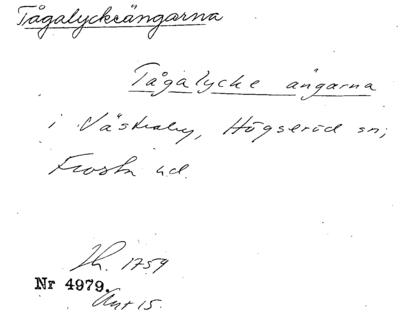 Tågalyckeängarna
Tågalycke ängarna
i Västraby, Högseröd sn,
Frosta hd.
Lh. 1759
Nr 4979.
Akt 15.